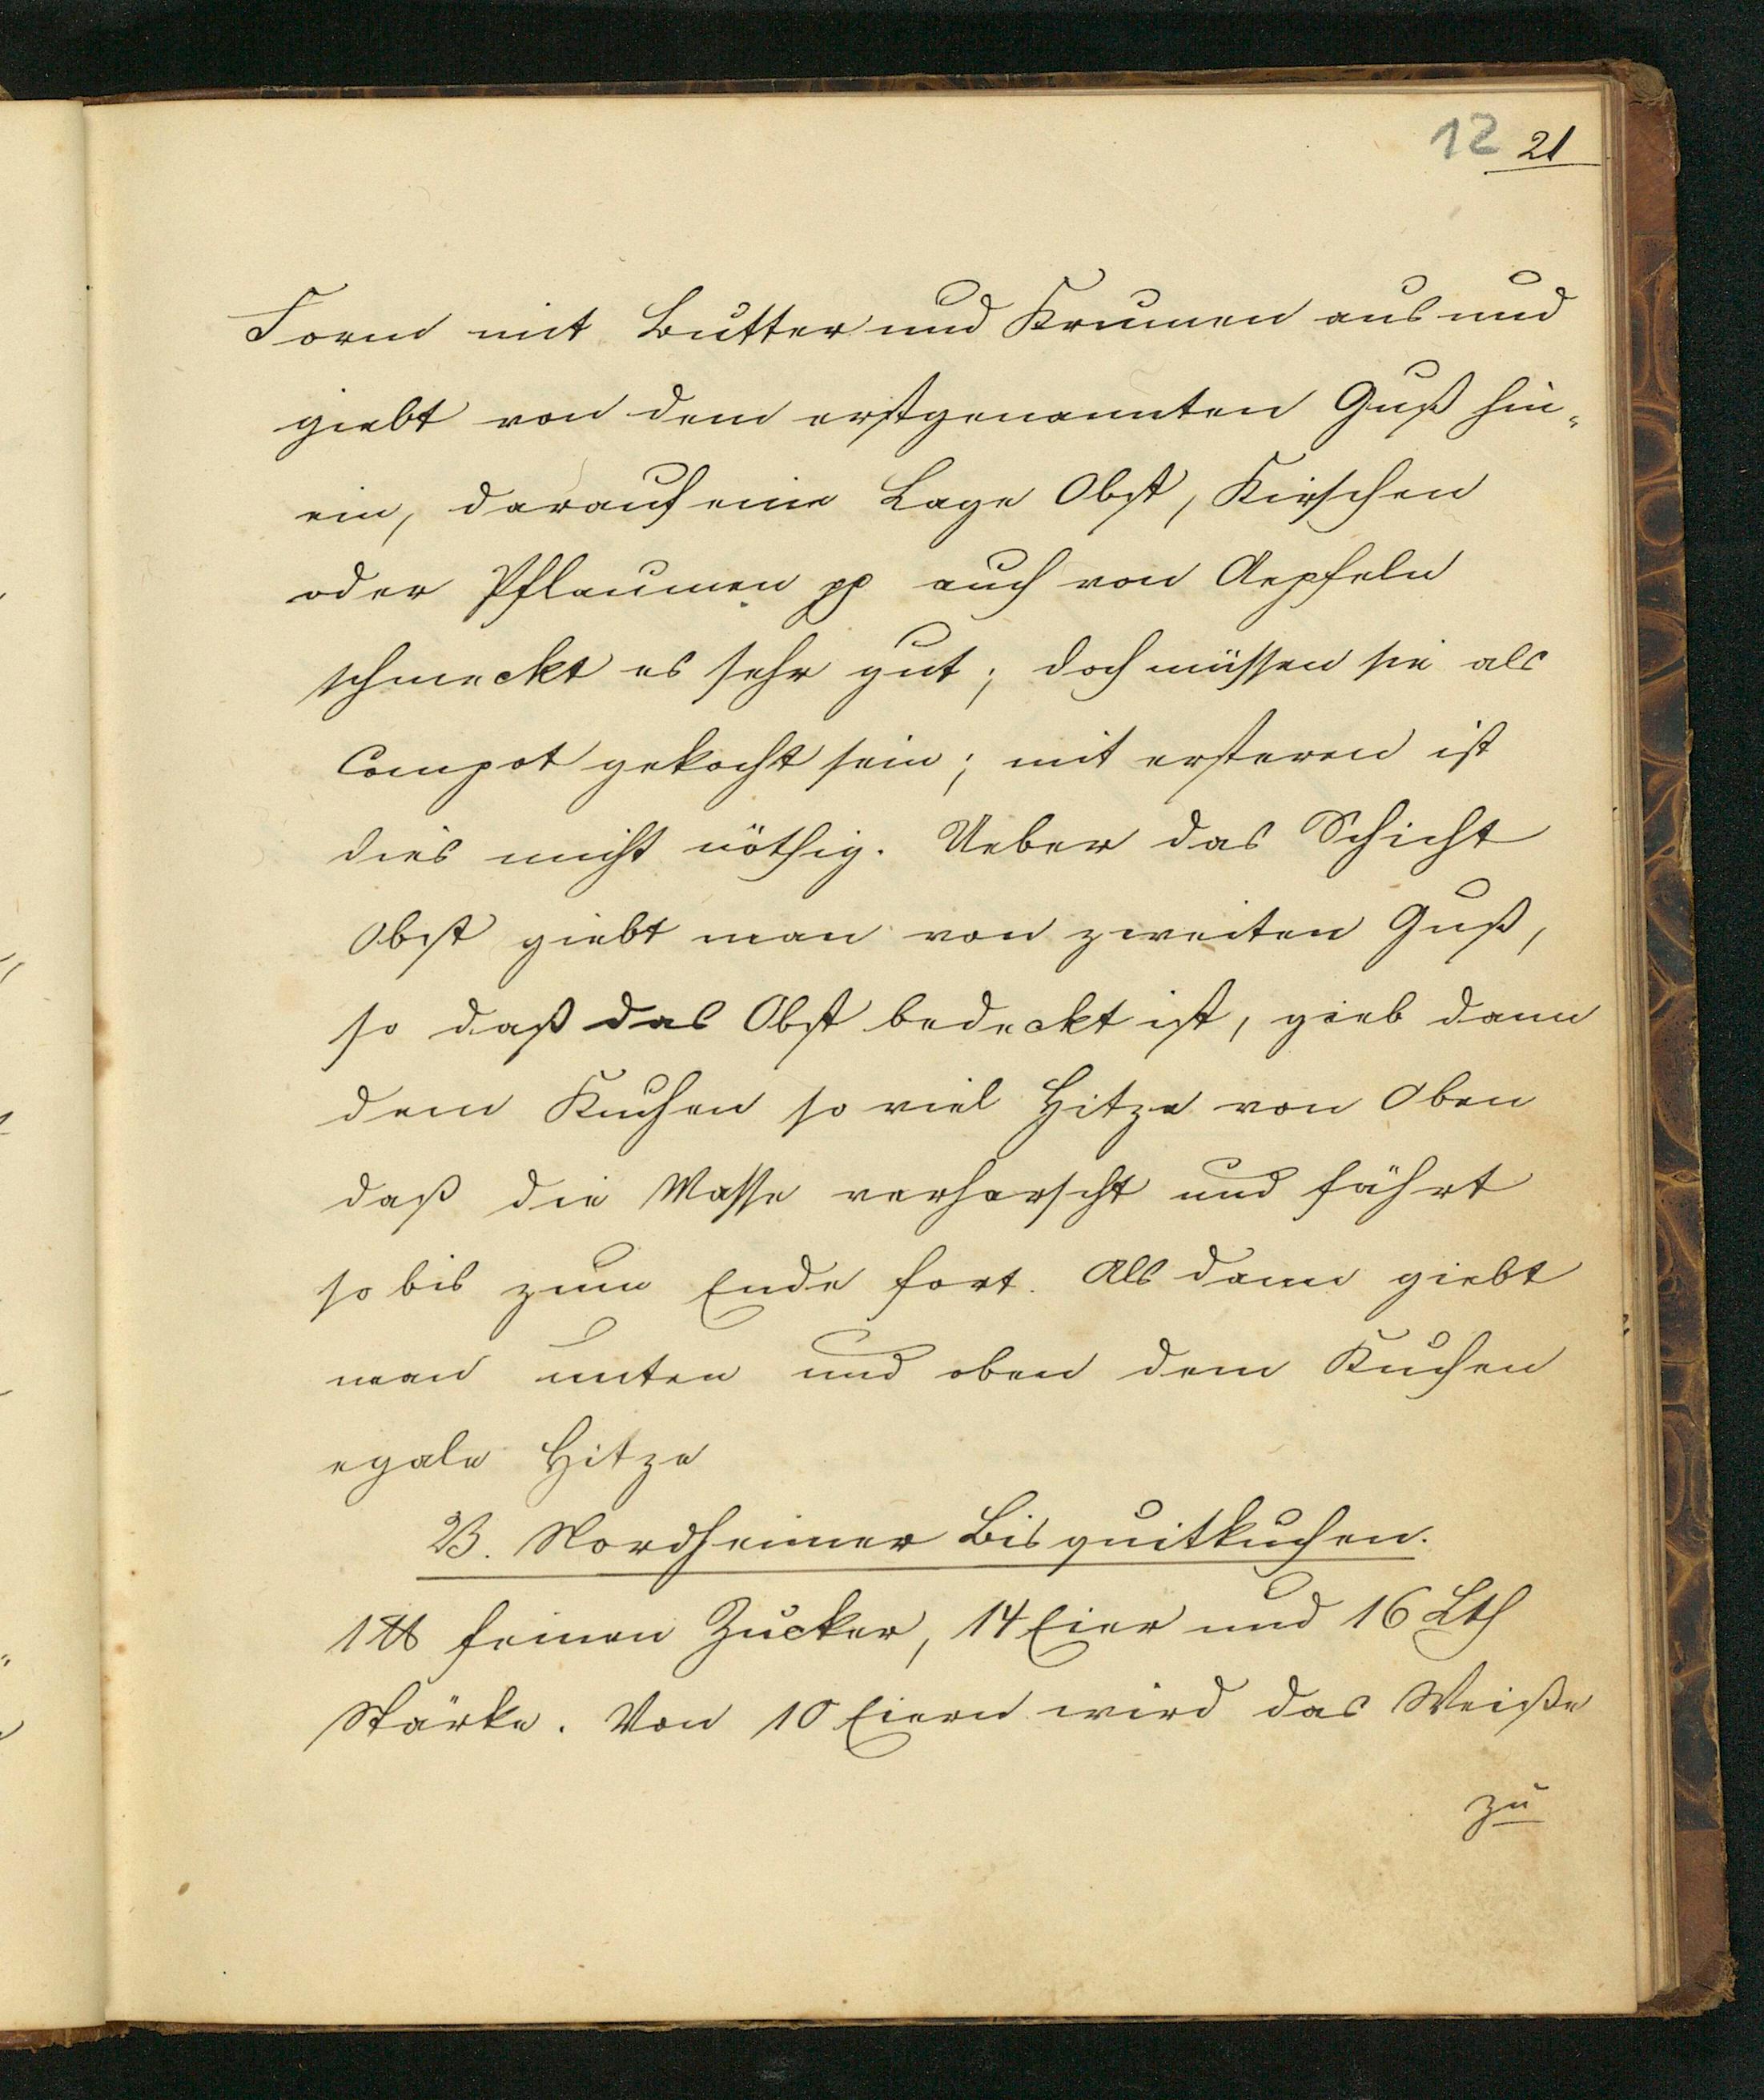 12 21
Form mit Butter und Krumen aus und
giebt von dem erstgenannten Guß hin-
ein, darauf eine Lage Obst, Kirschen
oder Pflaumen pp auch von Aepfeln
schmeckt es sehr gut; doch müssen sie als
Compot gekocht sein; mit ersteren ist
dies nicht nöthig. Ueber das Schicht
Obst giebt man von zweiten Guß,
so daß das Obst bedeckt ist, gieb dann
dem Kuchen so viel Hitze von Oben
daß die Masse verharscht und fährt
so bis zum Ende fort. Als dann giebt
man unten und oben dem Kuchen
egale Hitze
23. Nordheimer Bisquitkuchen.
1 ℔ feinen Zucker, 14 Eier und 16 Lth
Stärke. Von 10 Eiern wird das Weiße
zu